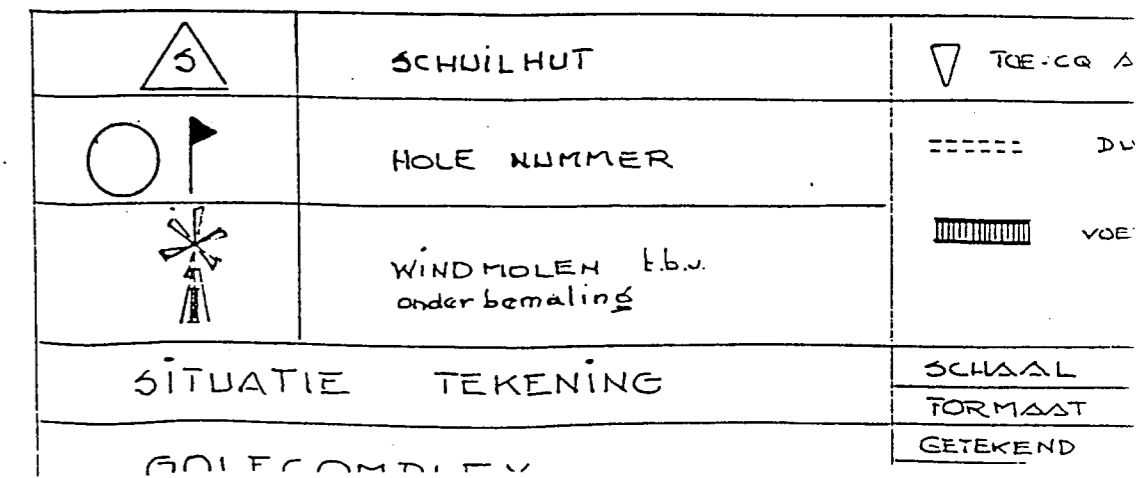 S
SCHUILHUT
TOE-CQ
HOLE NUMMER
WINDMOLEN t.b.v.
onderbemaling
SITUATIE TEKENING
SCHAAL
FORMAAT
GETEKEND
GOLFCOMPLEX